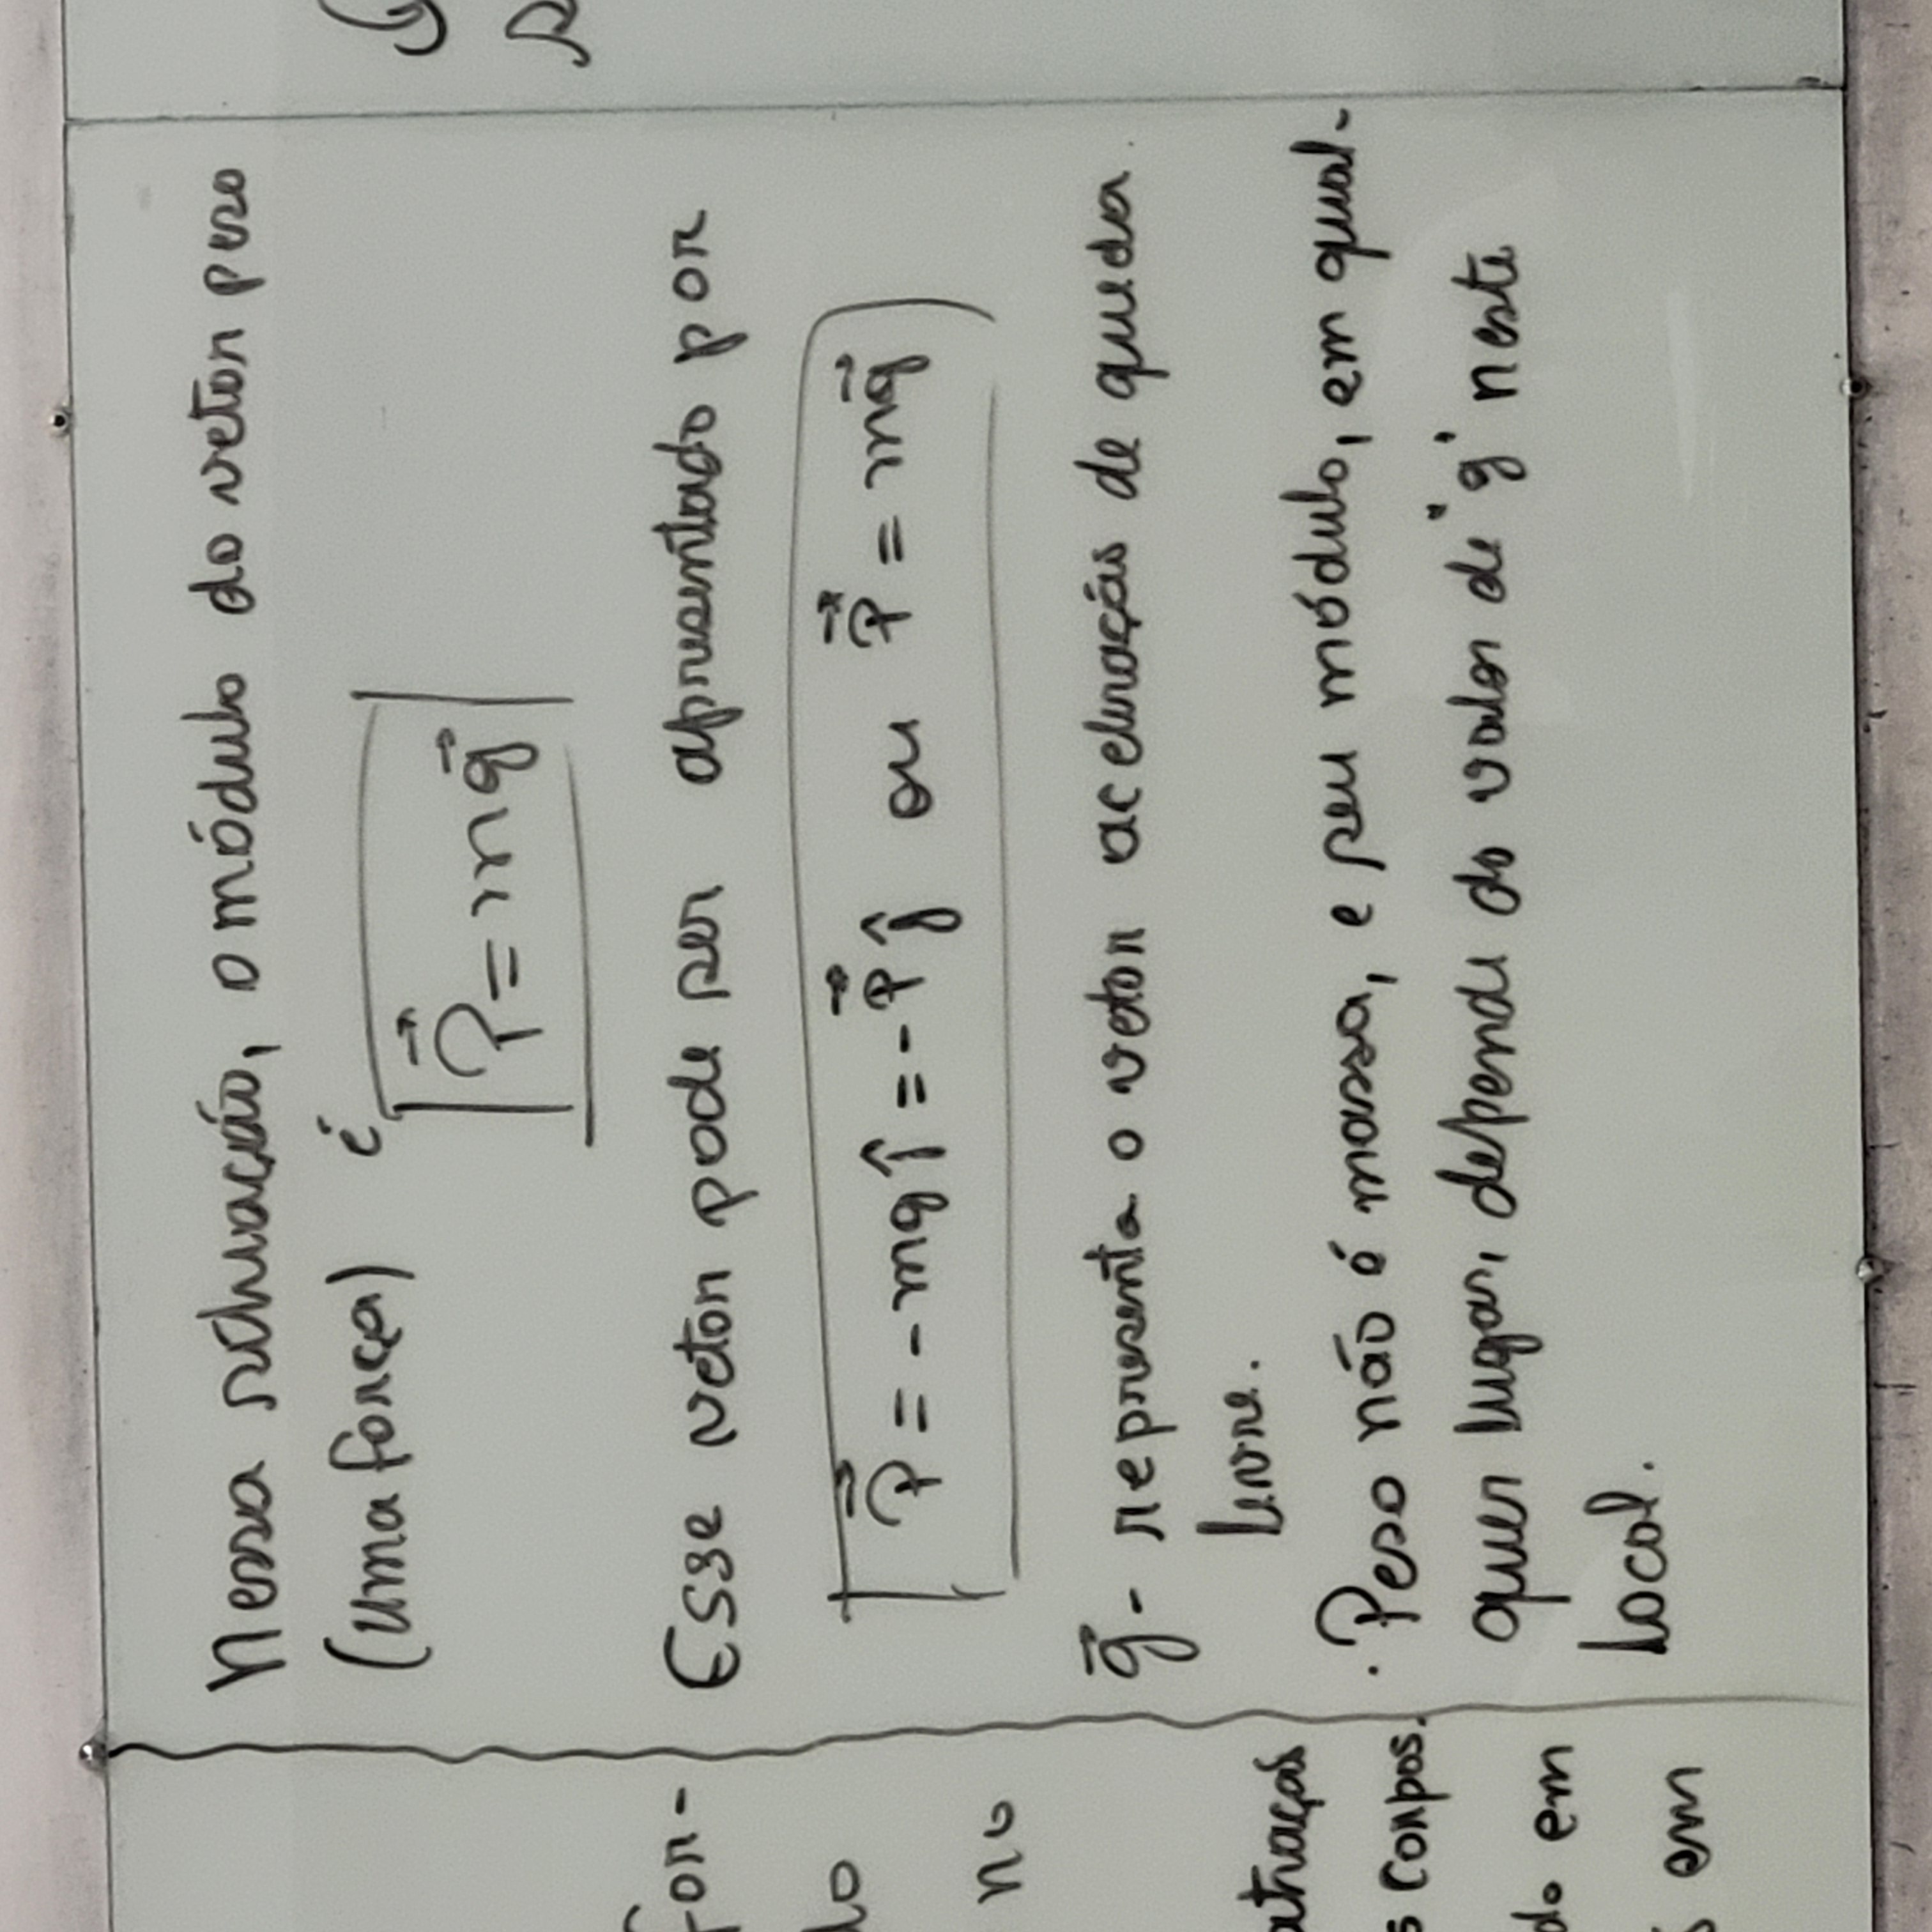 Nessa situação, o módulo do vetor peso
(uma força) é
P⃗ = mg⃗
Esse vetor pode ser apresentado por
P⃗ = - mg ĵ = - P⃗ ĵ ou P⃗ = mg⃗
g⃗ - representa o vetor aceleração de queda
livre.
. Peso não é massa, e seu módulo, em qual-
quer lugar, depende do valor de "g" neste
local.
for-
no
atração
s corpos.
do em
em